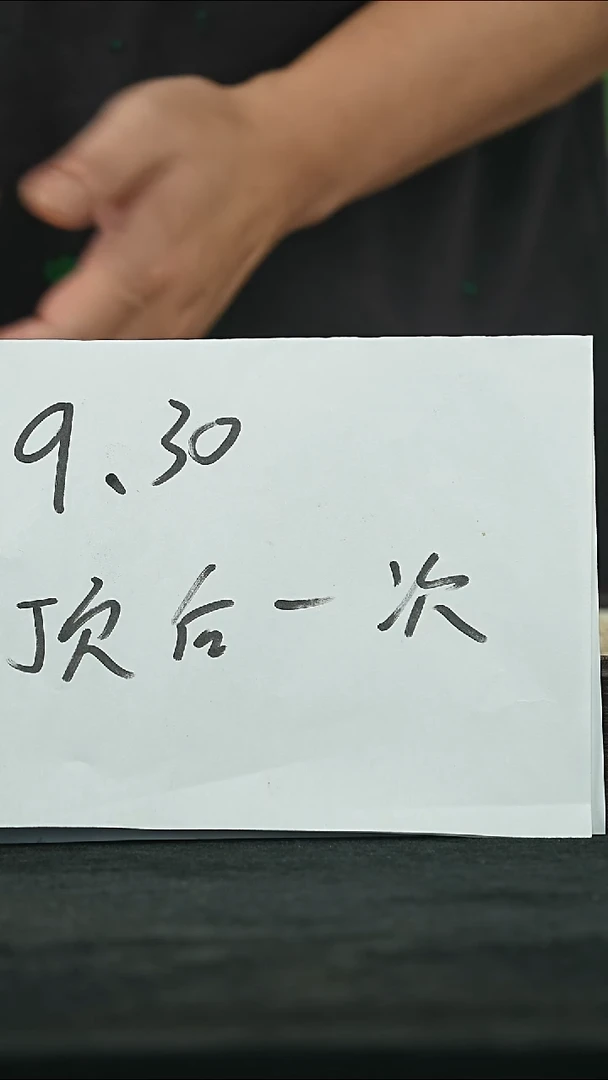 9.30
顶后一次